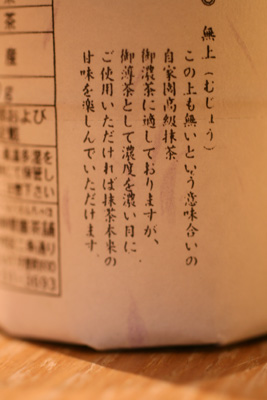 ◎ 無上(むじょう)
この上も無いという意味合いの
自家園高級抹茶
御濃茶に適しておりますが、
御薄茶として濃度を濃い目に、
ご使用いただければ抹茶本来の
甘味を楽しんでいただけます。
茶
産
および
高温多湿を
て保管し
下さい
茶舗
二条通り
3693